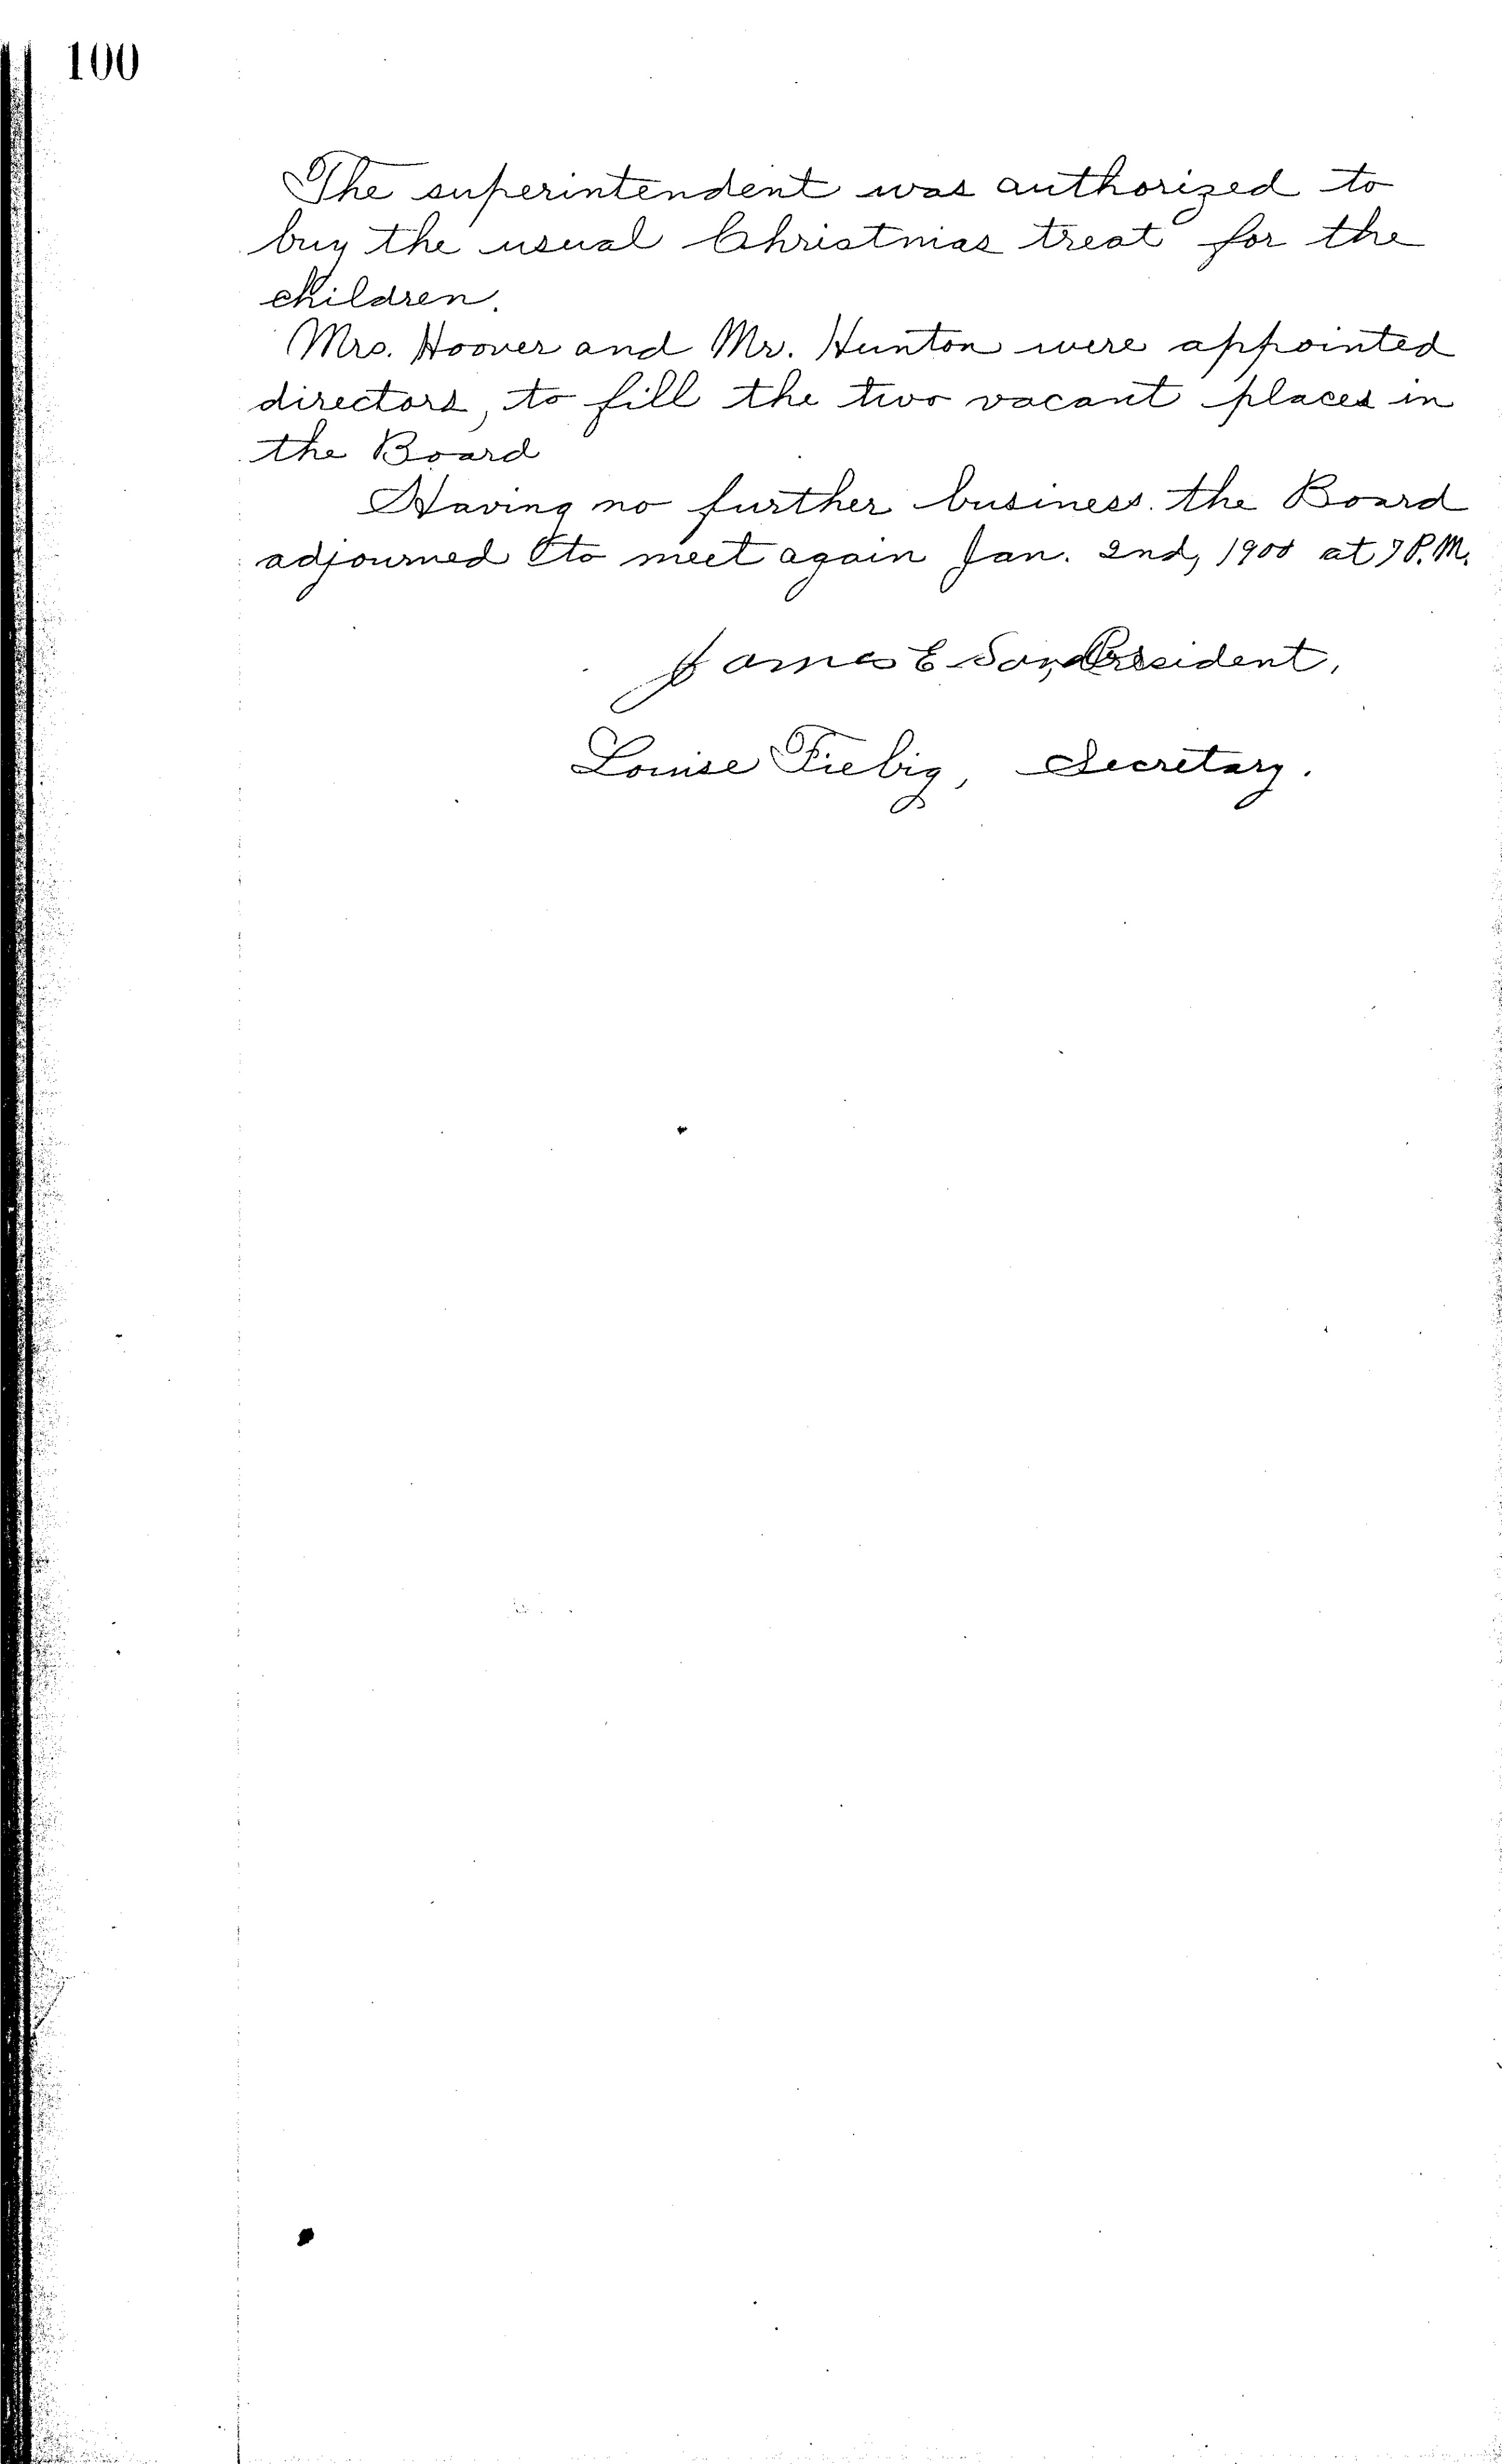 100
The superintendent was authorized to
buy the usual Christmas treat for the
children.
Mrs. Hoover and Mr. Hunton were appointed
directors, to fill the two vacant places in
the Board
Having no further business. the Board
adjourned to meet again Jan. 2nd, 1900 at 7 P.M.
James E President,
Louise Fiebig, Secretary.